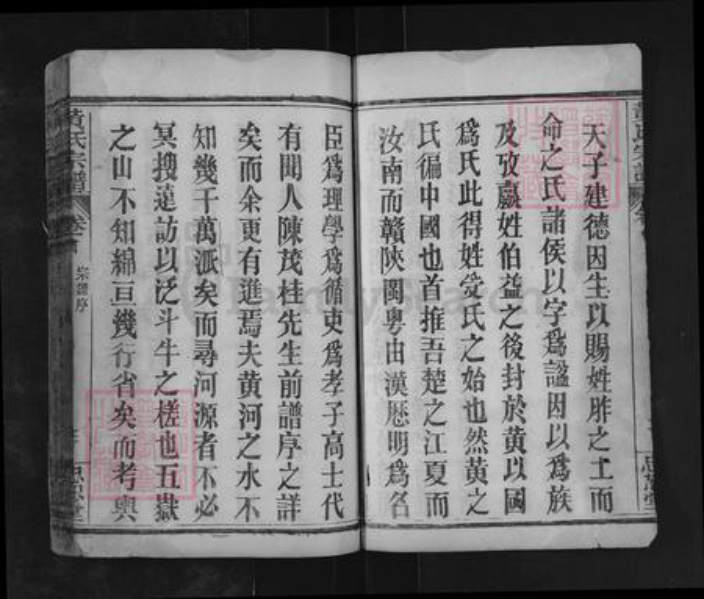 天子建德因生以賜姓胙之土而
命之氏諸侯以字爲諡因以爲族
及攷嬴姓伯益之後封於黄以國
爲氏此得姓受氏之始也然黄之
氏徧中國也首推吾楚之江夏而
汝南而贛陝閩粵由漢歷明爲名
臣爲理學爲循吏爲孝子高士代
有聞人陳茂桂先生前譜序之詳
矣而余更有進焉夫黄河之水不
知幾千萬派矣而尋河源者不必
冥搜遠訪以泛斗牛之槎也五嶽
之山不知綿亘幾行省矣而考輿
宗譜序
黄氏宗譜